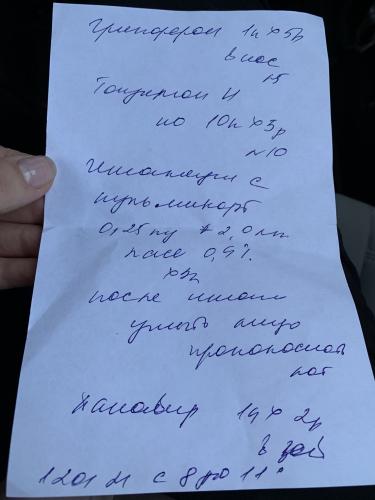 Гриппферон 1к х 5р
в нос
№5
Тонзилгон Н
по 10к х 3р
№10
Ингаляции с
пульмикорт
0,25 мг + 2,0 мл
NaCl 0,9%
после ингал
умыть лицо
прополоскать
рот
Панавир 1 х 2р
в
1201 с 8 до 11